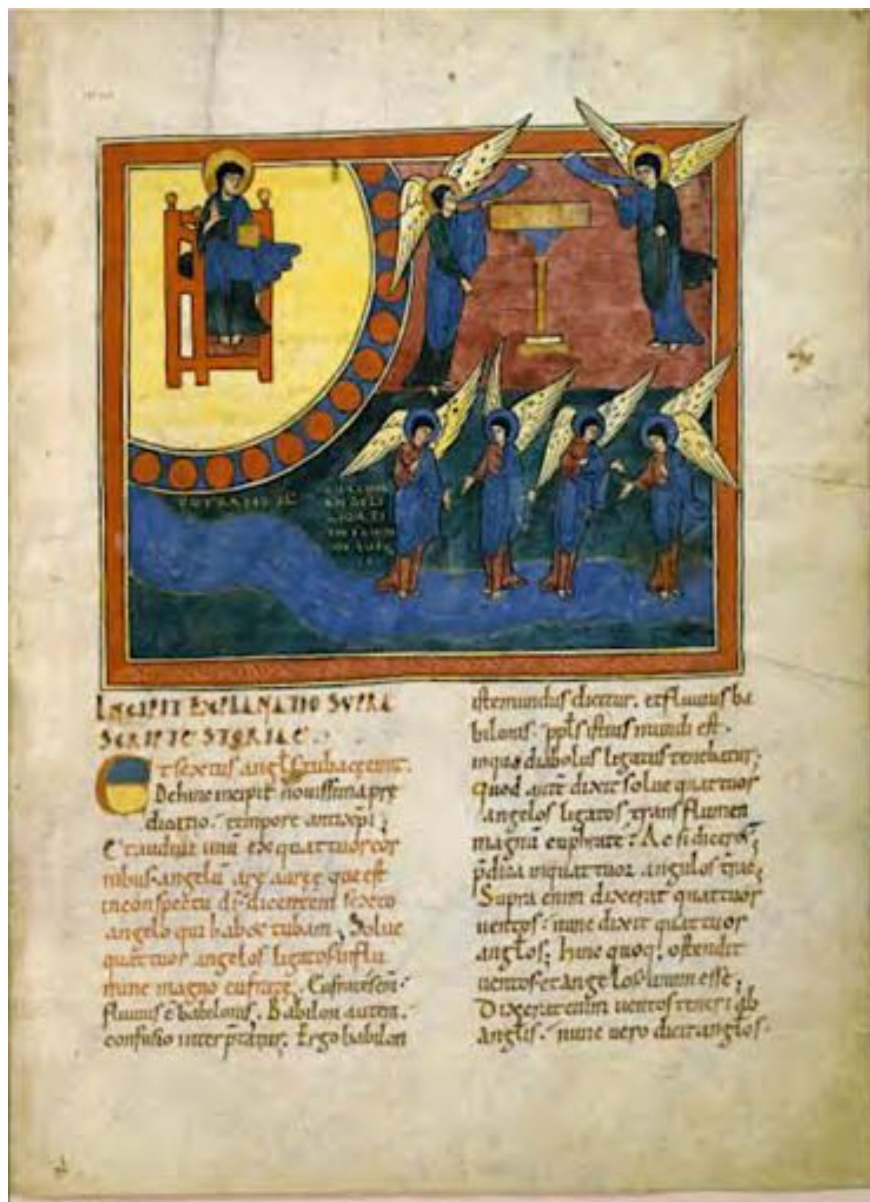 EUFRATES FL
INCIPIT EXPLANATIO SUPRA
SCRIPTE STORIAE.
Et sextus angls tuba cecinit.
Dehinc incipit novissima pre
dicatio. tempore antixpi;
Et audivi unu ex quattuor cor
nibus angelu are auree que est
in conspectu di. dicentem sexto
angelo qui habet tubam; Solue
quattuor angelos ligatos in flu
mine magno eufrate.
fluuius e babelonis. Babilon autem.
confusio interptatur. Ergo babilon
iste mundus dicitur. et fluuius ba
bilonis. ppls istius mundi est.
in quo diabolus ligatus tenebatur;
Quod aute dixit solue quattuor
angelos ligatos trans flumen
magnu euphrate. Ac si diceret;
in quattuor angulos
Supra enim dixerat quattuor
uentos. nunc dixit quattuor
anglos; hinc quoq; ostendit
uentos et angelos unum esse;
Dixerat enim uentos teneri ab
anglis. nunc uero dicit anglos.